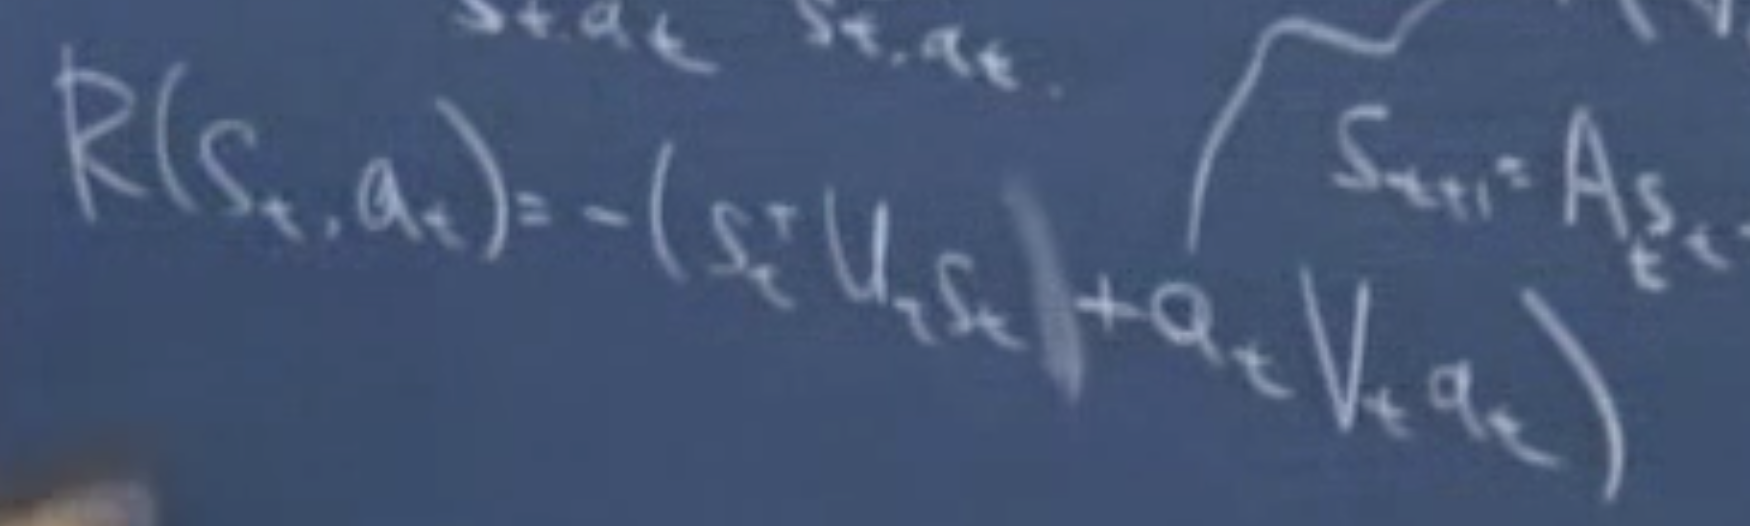 s_t, a_t s_t, a_t.
R(s_t, a_t) = -(s_t^T U_t s_t + a_t V_t a_t)
s_{t+1} = A s_t